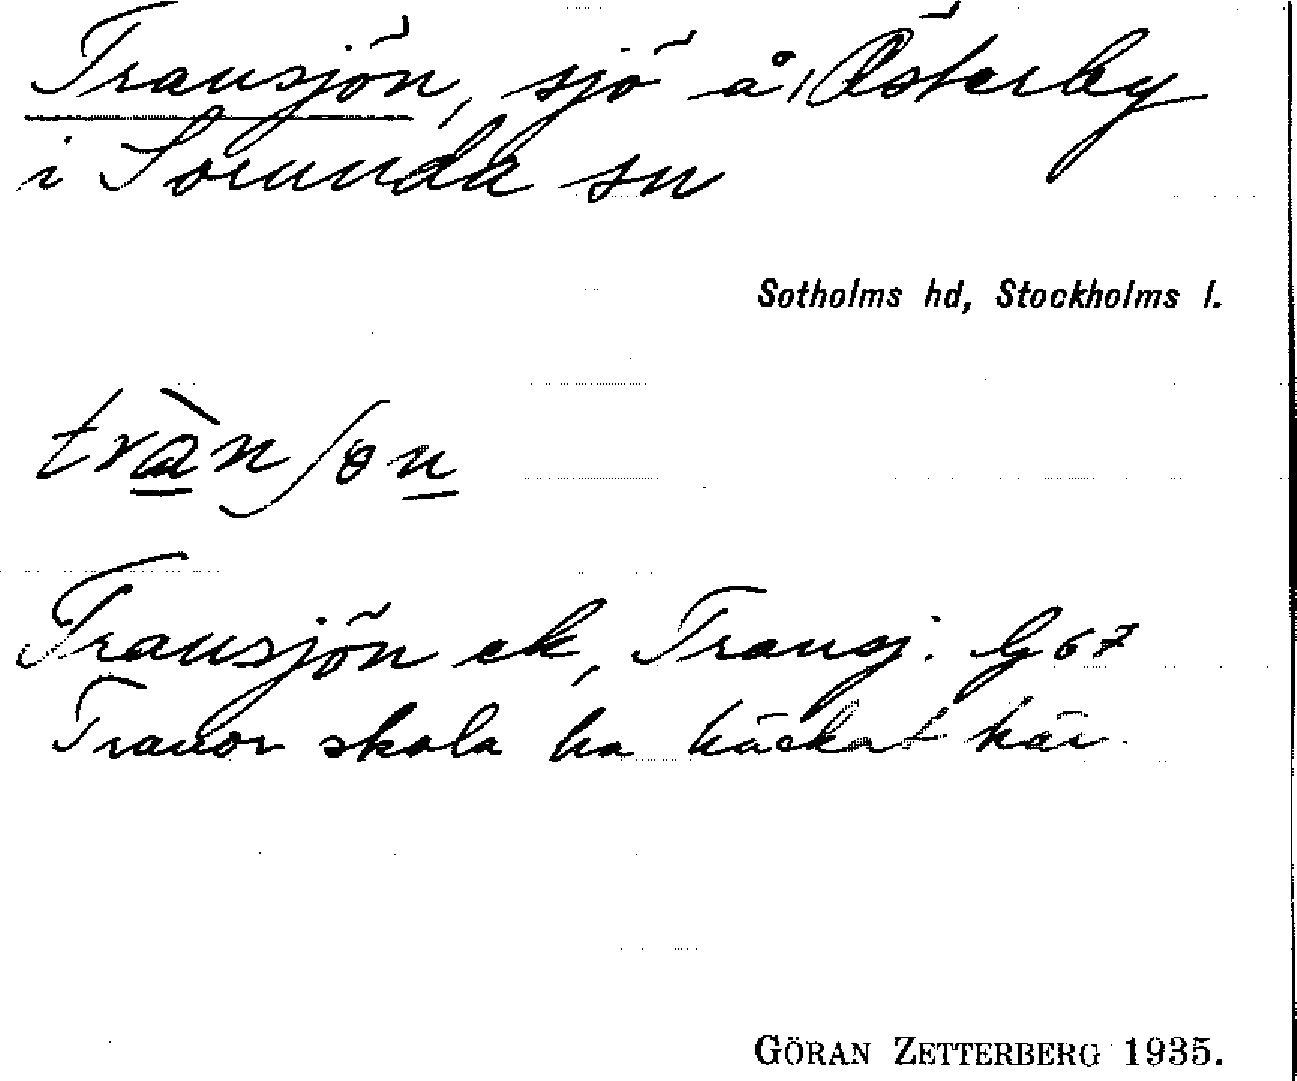 Transjön, sjö å Österby
i Sorunda sn
Sotholms hd, Stockholms l.
trànʃøn
Transjön ek, Transj. G 67
Tranor skola ha häckat här.
GÖRAN ZETTERBERG 1935.